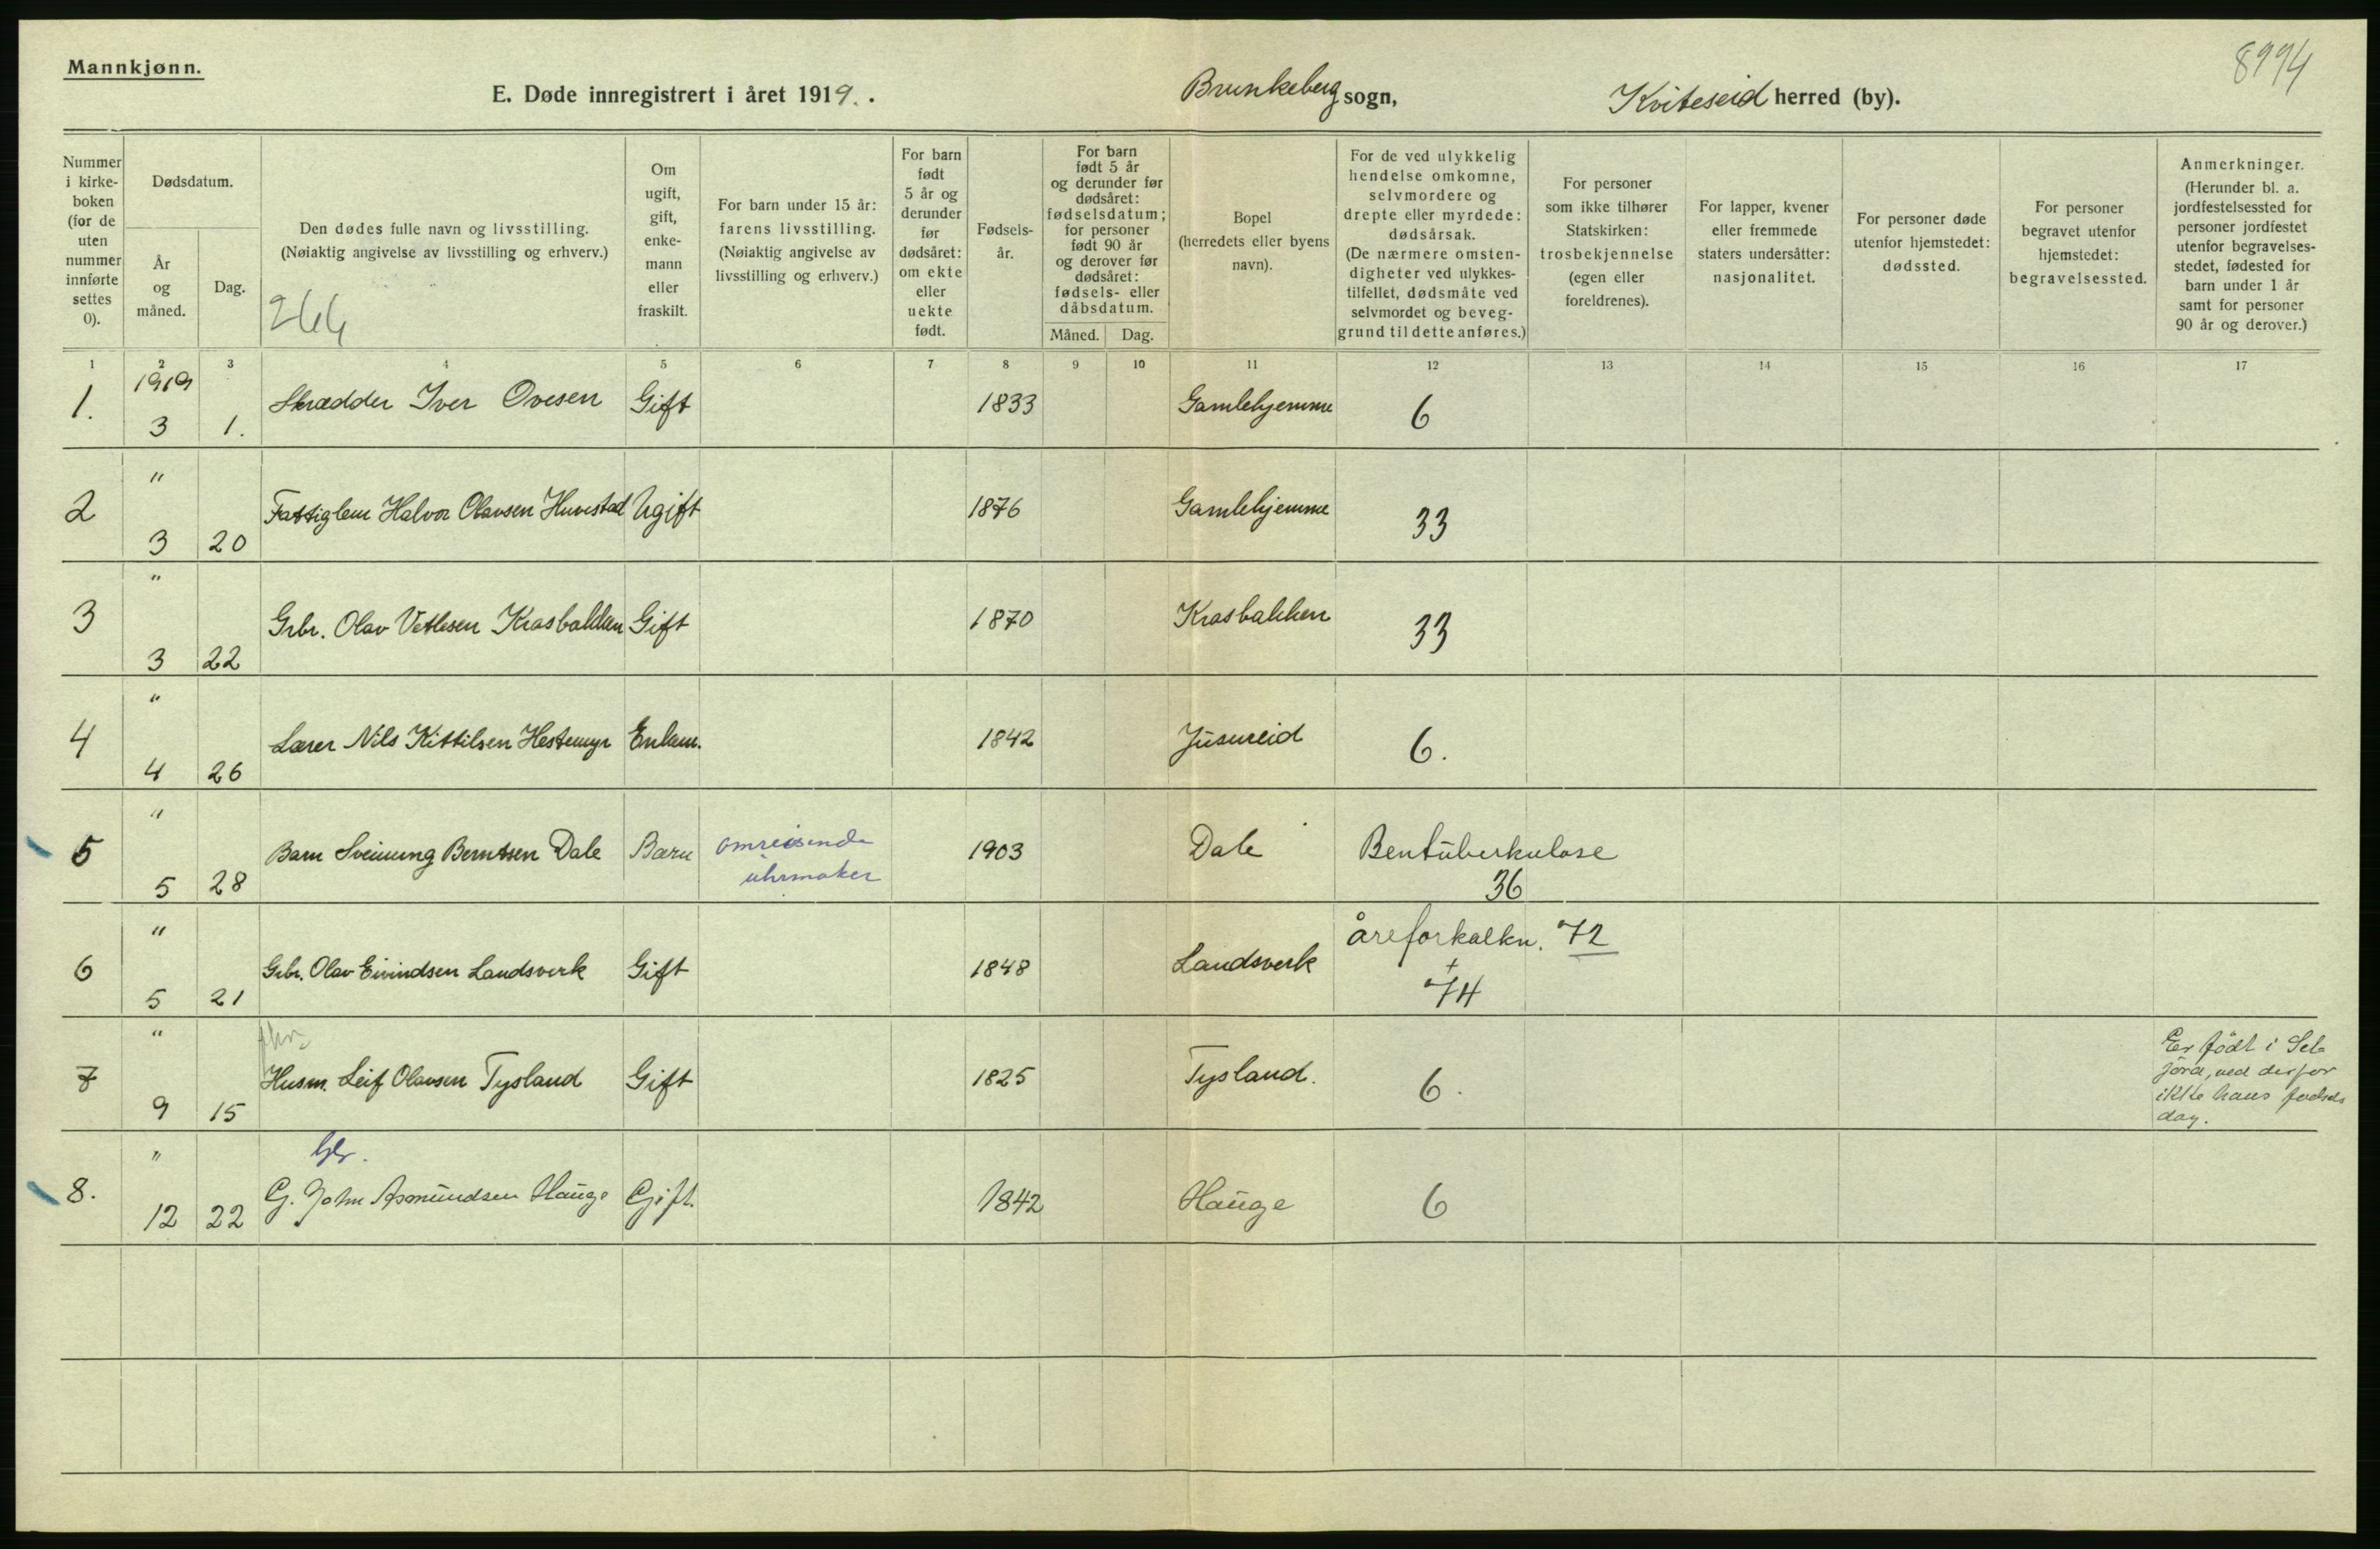 Mannkjønn.
8994
E. Døde innregistrert i året 1919. . Brunkeberg sogn, Kviteseid herred (by).
Nummer i kirke- boken (for de uten nummer innførte settes 0).
Dødsdatum.
År og måned.
Dag.
Den dødes fulle navn og livsstilling.
(Nøiaktig angivelse av livsstilling og erhverv.)
Om ugift, gift, enke- mann eller fraskilt.
For barn under 15 år: farens livsstilling. (Nøiaktig angivelse av livsstilling og erhverv.)
For barn født 5 år og derunder før dødsåret: om ekte eller uekte født.
Fødsels- år.
For barn født 5 år og derunder før dødsåret: fødselsdatum; for personer født 90 år og derover før dødsåret: fødsels- eller dåbsdatum.
Måned. Dag.
Bopel (herredets eller byens navn).
For de ved ulykkelig hendelse omkomne, selvmordere og drepte eller myrdede: dødsårsak. (De nærmere omsten- digheter ved ulykkes- tilfellet, dødsmåte ved selvmordet og beveg- grund til dette anføres.)
For personer som ikke tilhører Statskirken: trosbekjennelse (egen eller foreldrenes).
For lapper, kvener eller fremmede staters undersåtter: nasjonalitet.
For personer døde utenfor hjemstedet: dødssted.
For personer begravet utenfor hjemstedet: begravelsessted.
Anmerkninger. (Herunder bl. a. jordfestelsessted for personer jordfestet utenfor begravelses- stedet, fødested for barn under 1 år samt for personer 90 år og derover.)
1 2 3 4 5 6 7 8 9 10 11 12 13 14 15 16 17
1. 1919 3 1. Skrædder Iver Ovesen Gift 1833 Gamlehjemme 6
2 " 3 20 Fattiglem Halvor Olavsen Huvestad Ugift 1876 Gamlehjemme 33
3 " 3 22 Grbr. Olav Vetlesen Krosbakken Gift 1870 Krosbakken 33
4 " 4 26 Lærer Nils Kittilsen Hestemyr Enkem. 1842 Jusureid 6.
5 " 5 28 Barn Sveinung Berntsen Dale Barn omreisende
uhrmaker 1903 Dale Bentuberkulose
36
6 " 5 21 Grbr. Olav Eivindsen Landsverk Gift 1848 Landsverk åreforkalkn. 72
+
74
7 " 9 15 Husm. Leif Olavsen Tysland Gift 1825 Tysland. 6. Er født i Sel-
jord, ved derfor
ikke hans fødsels
dag.
8. " 12 22 G. John Asmundsen Hauge Gift. 1842 Hauge 6